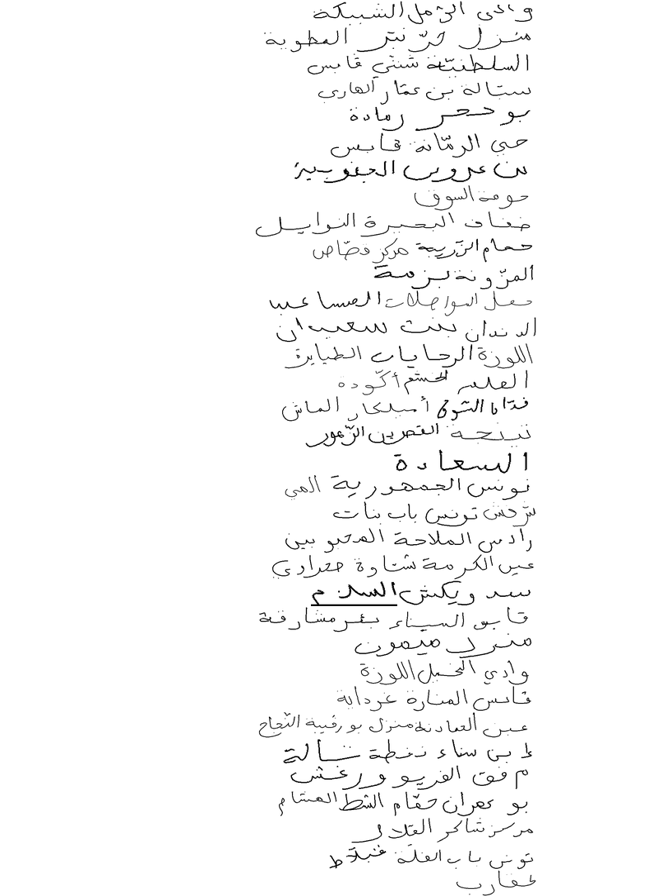 وادي الرمل الشبيكة
منزل حرّ نبر المطوية
السلطنيّة شنني قابس
ستالة بن عمّار الهاري
بو حجر رمادة
حي الرمّانة قابس
بن عروس الجنوبية
حومة السوق
ضفاف البحيرة النوايل
حمام الزّريبة مركز قصّاص
المزّونة بزمة
معمل المواصلات
الدندان بنت سعيدان
اللوزة الرحايات الطيايرة
أكّوده
أميلكار الماش
القصرين الزّهور
السعادة
تونس الجمهورية
تونس باب بنات
رادس الملاحة المحبوبين
عين الكرمة شناوة
سدويكش السلام
قابس السيناء بئر مشارقة
منزل ميمون
وادي النخيل اللوزة
قابس المنارة غردانة
منزل بورقيبة النّجاح
بن سناء نفطة تالة
الفريو ورغش
بو عمران حمّام الشط الهشام
مركز شاكر القلال
تونس باب الفلّة قبلاط
عقارب